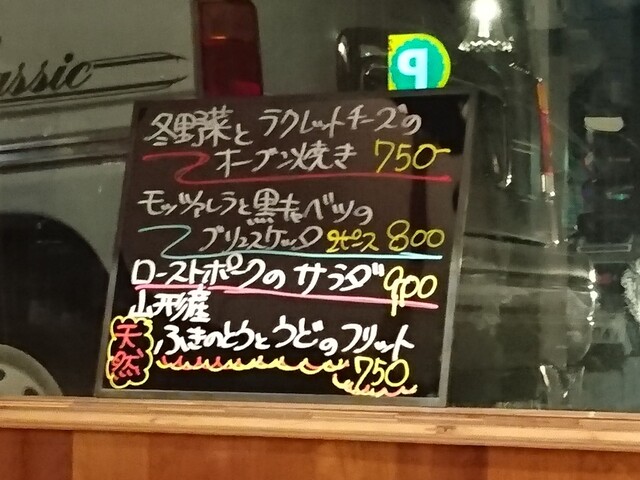 assic
P
冬野菜とラクレットチーズの
オーブン焼き 750-
モッツァレラと黒キャベツの
ブリュスケッタ 2ピース 800
ローストポークのサラダ 900
山形産
天然 ふきのとうとうどのフリット
750